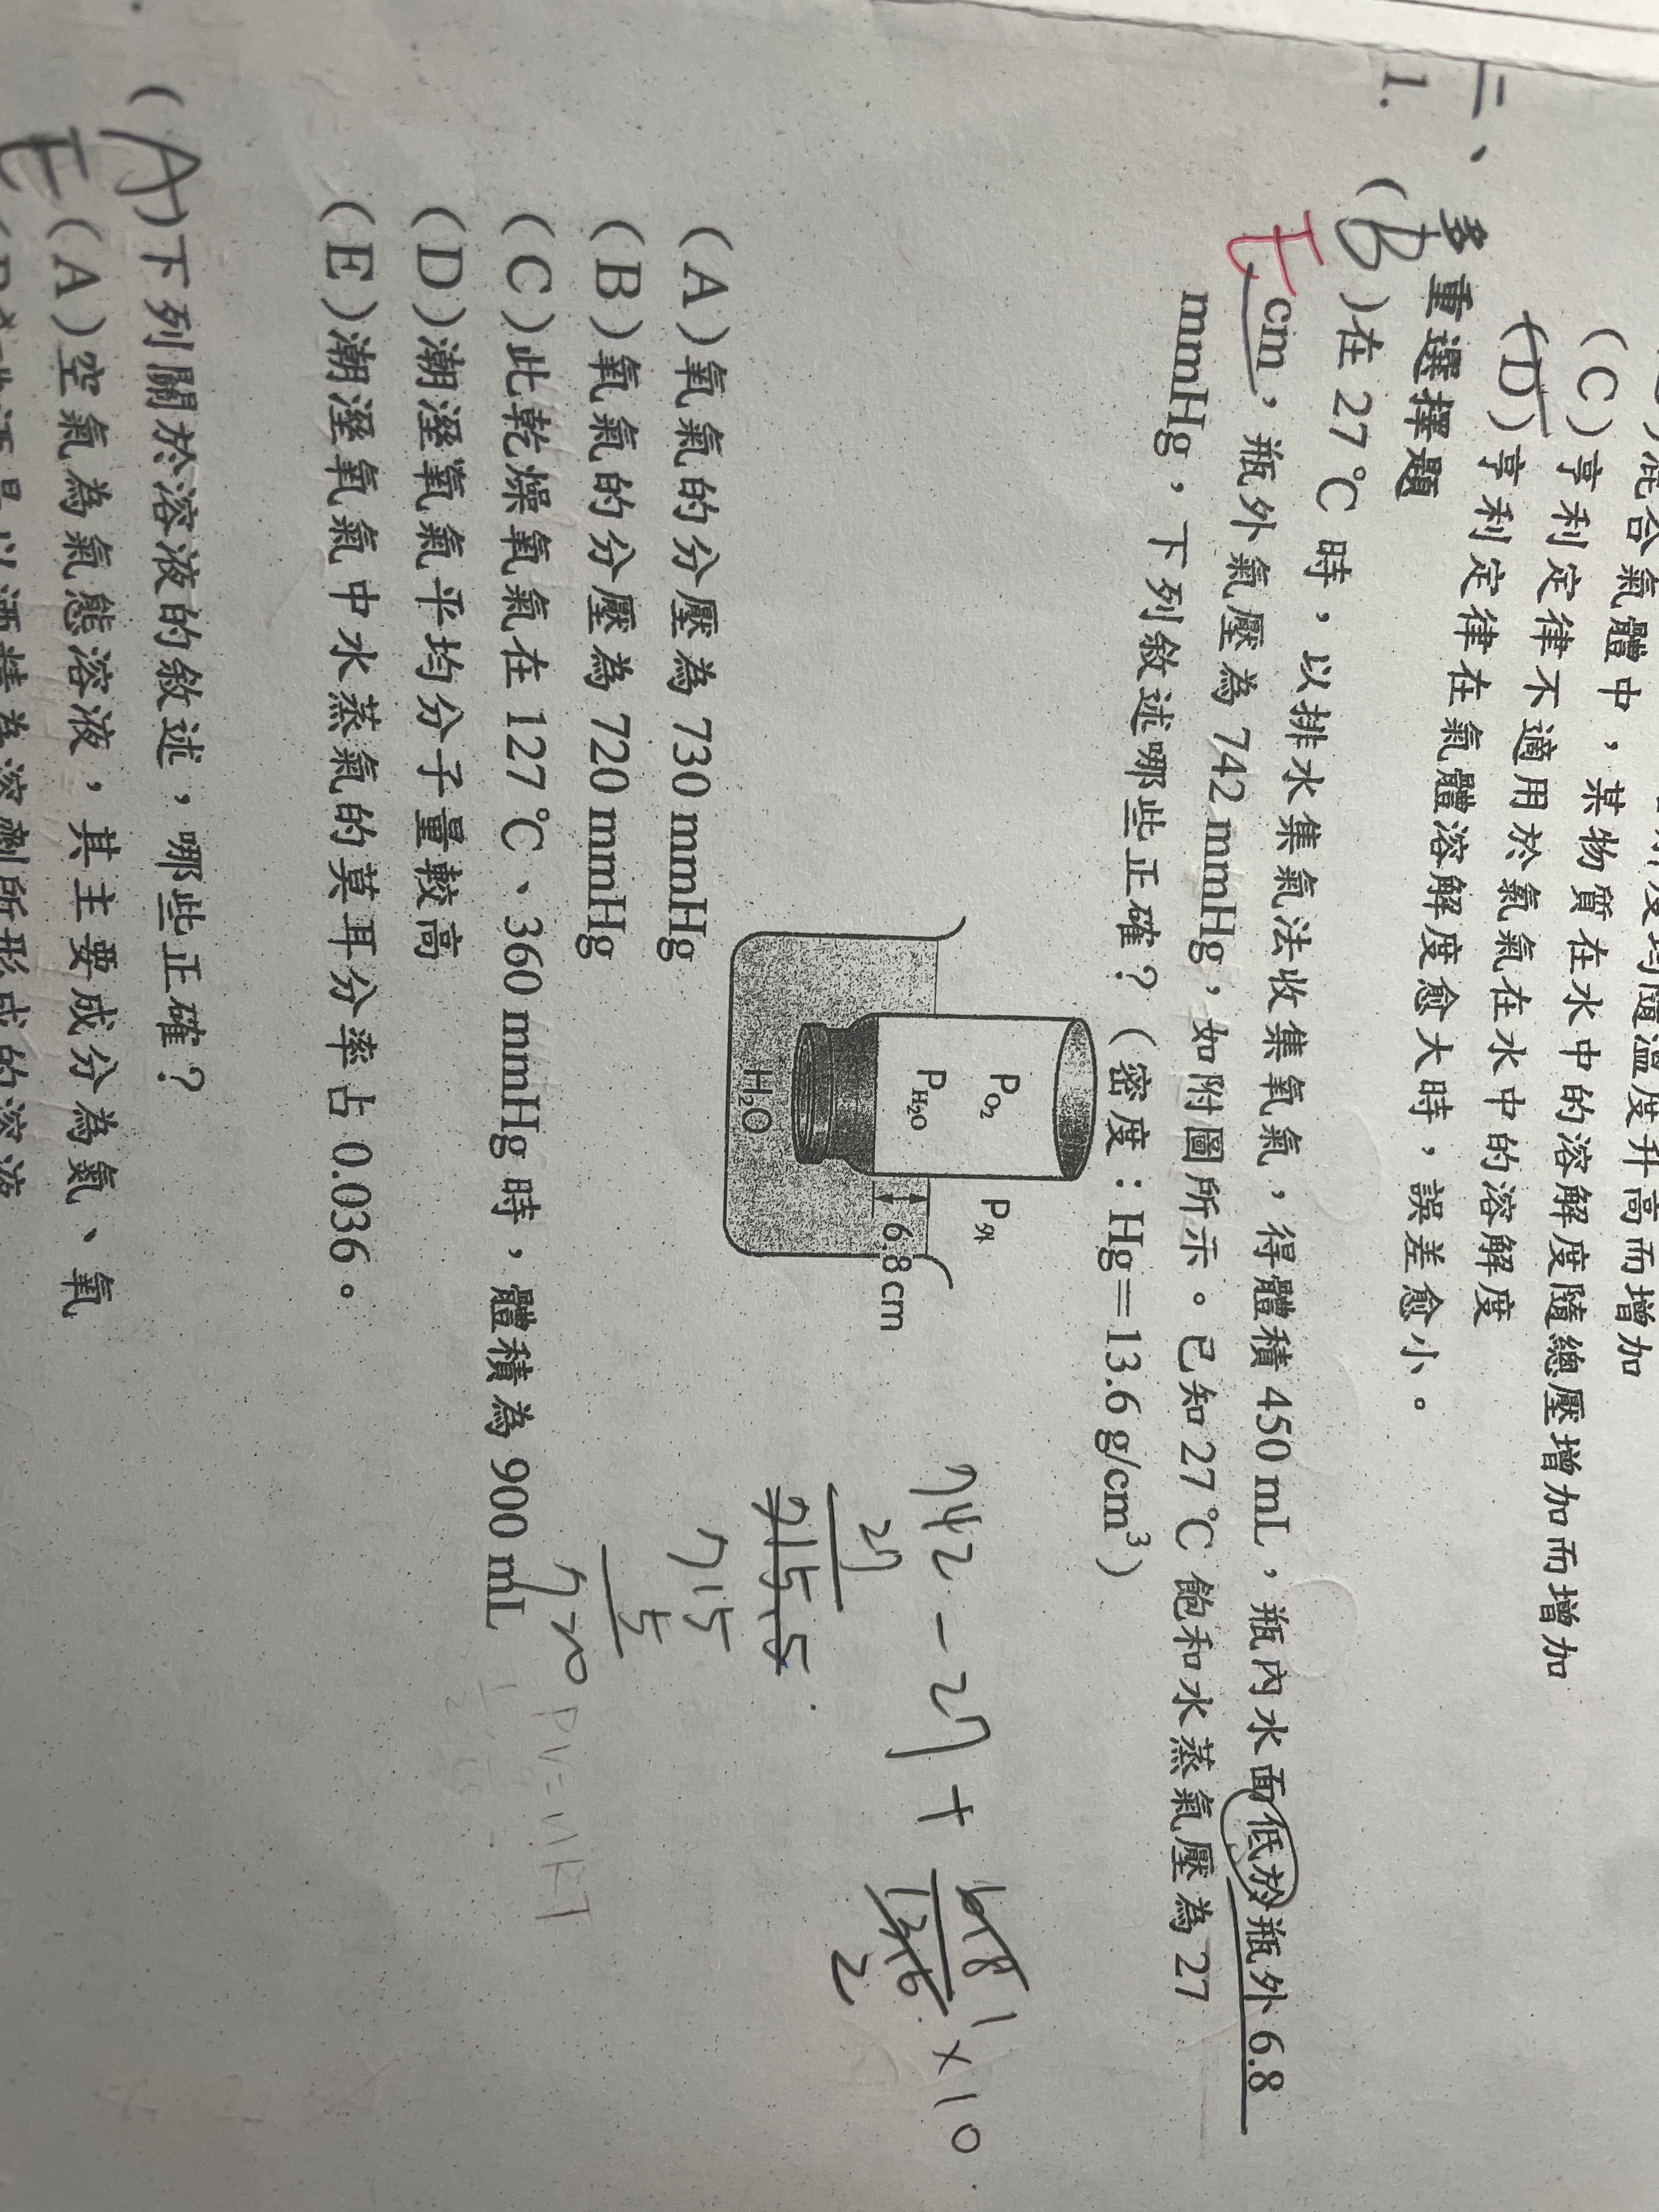 混合氣體中，某物質在水中的溶解度隨總壓增加而增加
(C)亨利定律不適用於氯氣在水中的溶解度
(D)亨利定律在氣體溶解度愈大時，誤差愈小。
二、多重選擇題
1. (B)在 27℃ 時，以排水集氣法收集氧氣，得體積 450 mL，瓶內水面低於瓶外 6.8
E
cm，瓶外氣壓為 742 mmHg，如附圖所示。已知 27℃ 飽和水蒸氣壓為 27
mmHg，下列敘述哪些正確？（密度：Hg＝13.6 g/cm³）
P外
PO₂
PH₂O
6.8 cm
H₂O
742 - 27 + 6.8/13.6 × 10
1
2
27
715.5
715
5
720
PV=nRT
(A)氧氣的分壓為 730 mmHg
(B)氧氣的分壓為 720 mmHg
(C)此乾燥氧氣在 127℃、360 mmHg 時，體積為 900 mL
(D)潮溼氧氣平均分子量較高
(E)潮溼氧氣中水蒸氣的莫耳分率占 0.036。
(A)下列關於溶液的敘述，哪些正確？
E
(A)空氣為氣態溶液，其主要成分為氮、氧